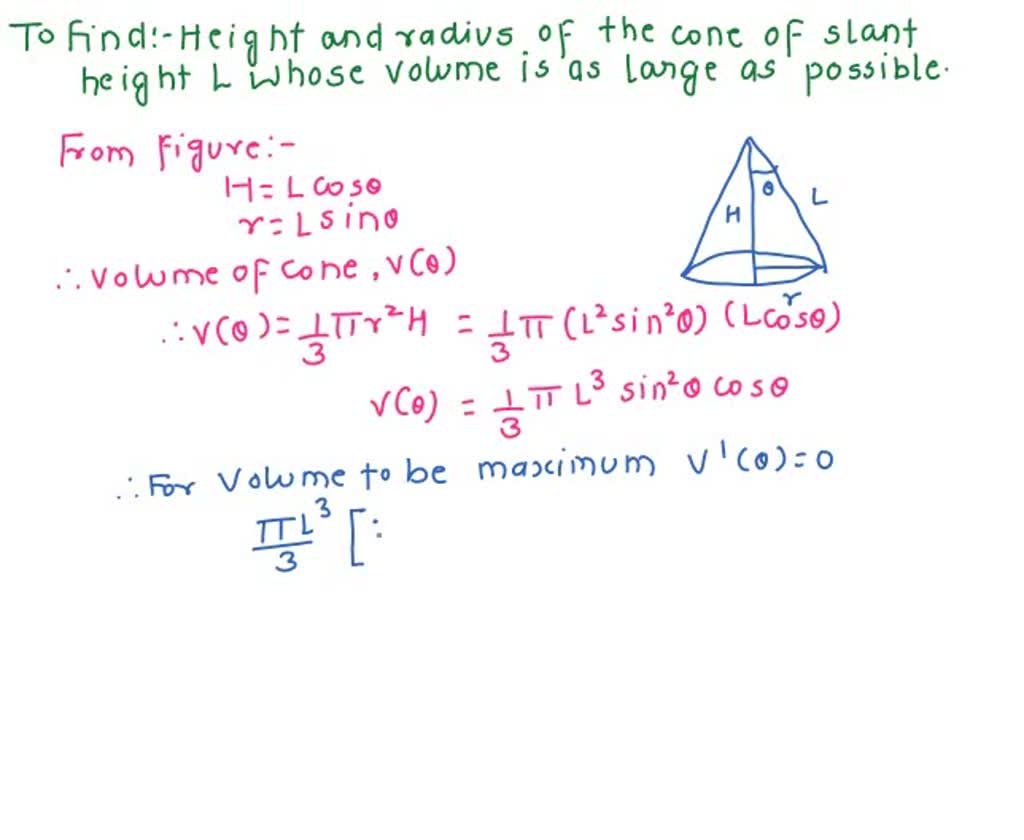 To find:- Height and radius of the cone of slant
height L whose volume is as large as possible.
From figure:-
H = L cosθ
r = L sinθ
∴ volume of cone, V(θ)
∴ V(θ) = 1/3 πr²H = 1/3 π (L² sin²θ) (L cosθ)
V(θ) = 1/3 π L³ sin²θ cosθ
∴ For volume to be maximum V'(θ) = 0
πL³/3 [
θ
H
L
r